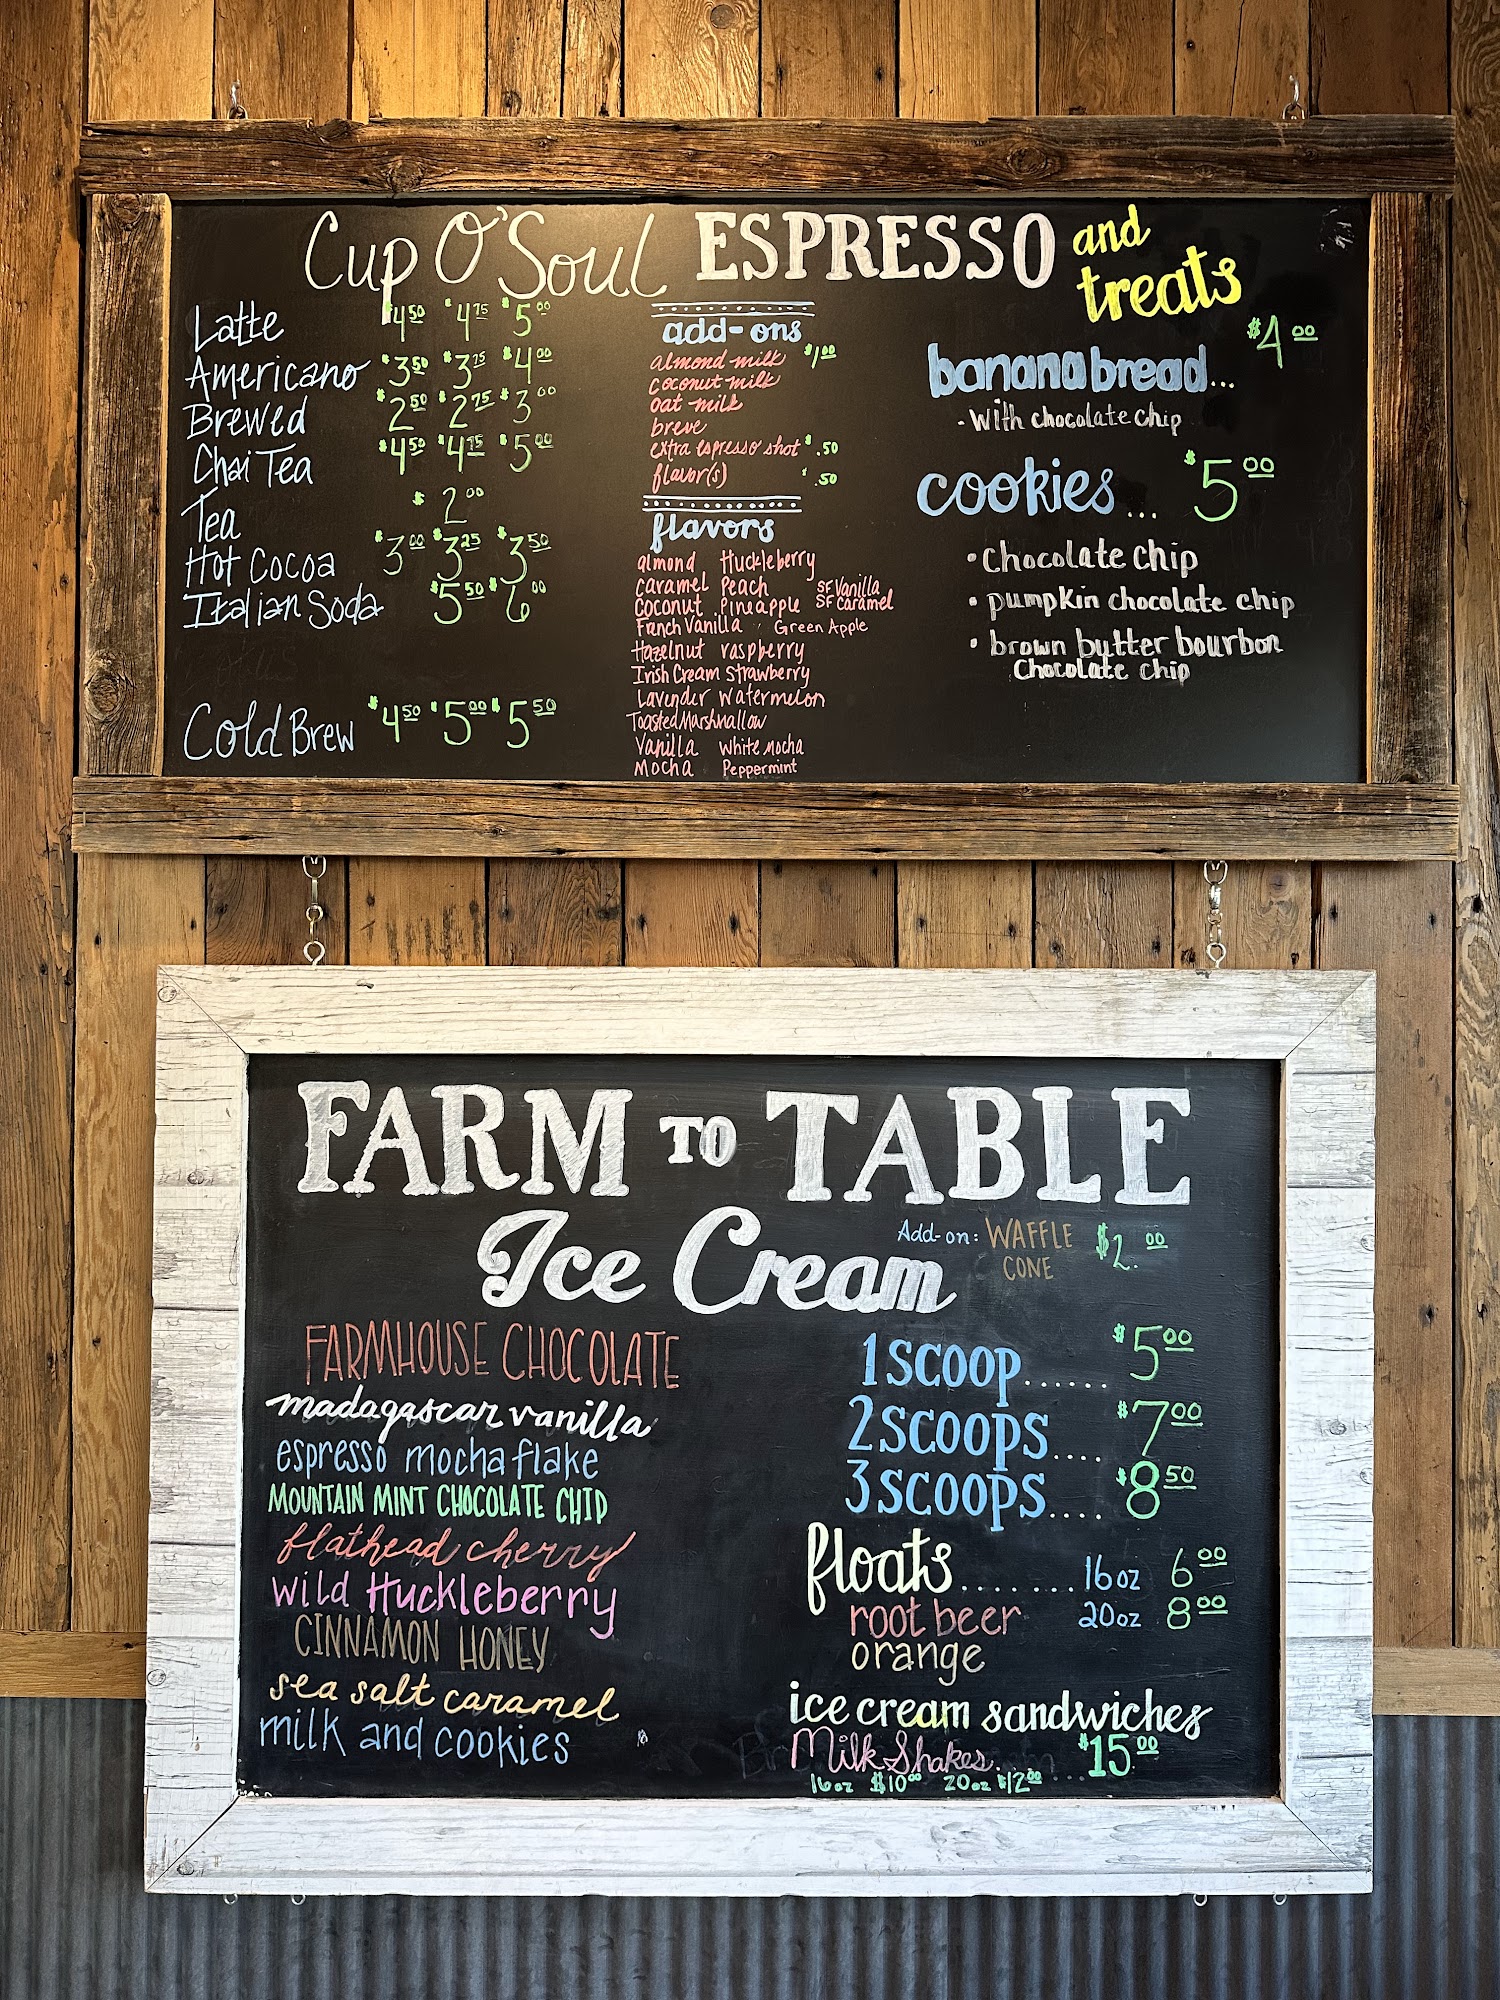 Cup O'Soul ESPRESSO and treats
Latte $4.50 $4.75 $5.00
Americano $3.50 $3.75 $4.00
Brewed $2.50 $2.75 $3.00
Chai Tea $4.50 $4.75 $5.00
Tea $2.00
Hot Cocoa $3.00 $3.25 $3.50
Italian Soda $5.50 $6.00
Cold Brew $4.50 $5.00 $5.50
add-ons
almond milk $1.00
coconut milk
oat milk
breve
extra espresso shot $.50
flavor(s) $.50
flavors
almond Huckleberry
caramel Peach SF Vanilla
Coconut Pineapple SF caramel
French Vanilla Green Apple
Hazelnut raspberry
Irish Cream Strawberry
Lavender Watermelon
Toasted Marshmallow
Vanilla White Mocha
Mocha Peppermint
banana bread... $4.00
- With chocolate chip
cookies... $5.00
• Chocolate chip
• pumpkin chocolate chip
• brown butter bourbon
Chocolate chip
FARM TO TABLE
Ice Cream
Add-on: WAFFLE CONE $2.00
FARMHOUSE CHOCOLATE
madagascar vanilla
espresso mocha flake
MOUNTAIN MINT CHOCOLATE CHIP
flathead cherry
wild Huckleberry
CINNAMON HONEY
sea salt caramel
milk and cookies
1 SCOOP...... $5.00
2 SCOOPS.... $7.00
3 SCOOPS.... $8.50
floats........16oz 6.00
root beer 20oz 8.00
orange
ice cream sandwiches
MilkShakes... $15.00
16oz $10.00 20oz $12.00